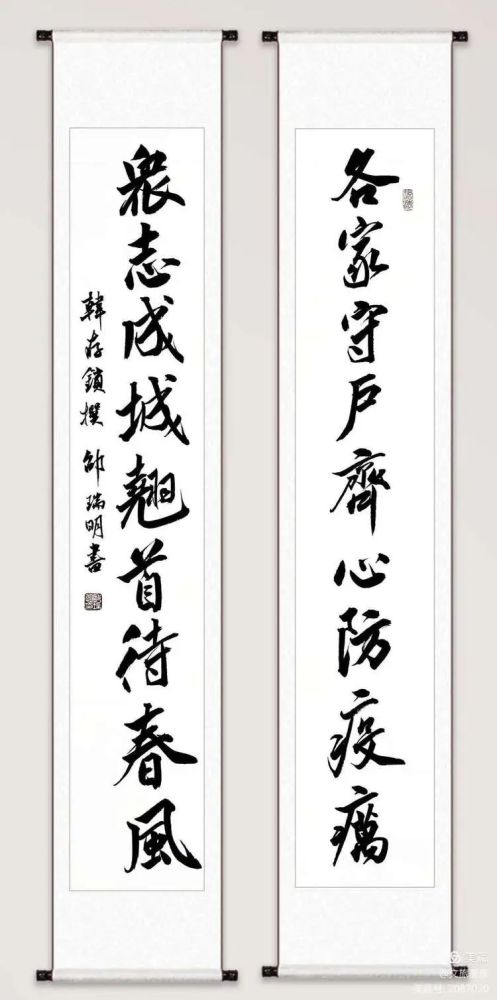 各家守戶齊心防疫癘
眾志成城翹首待春風
韓存鎖撰 邵瑞明書
美篇